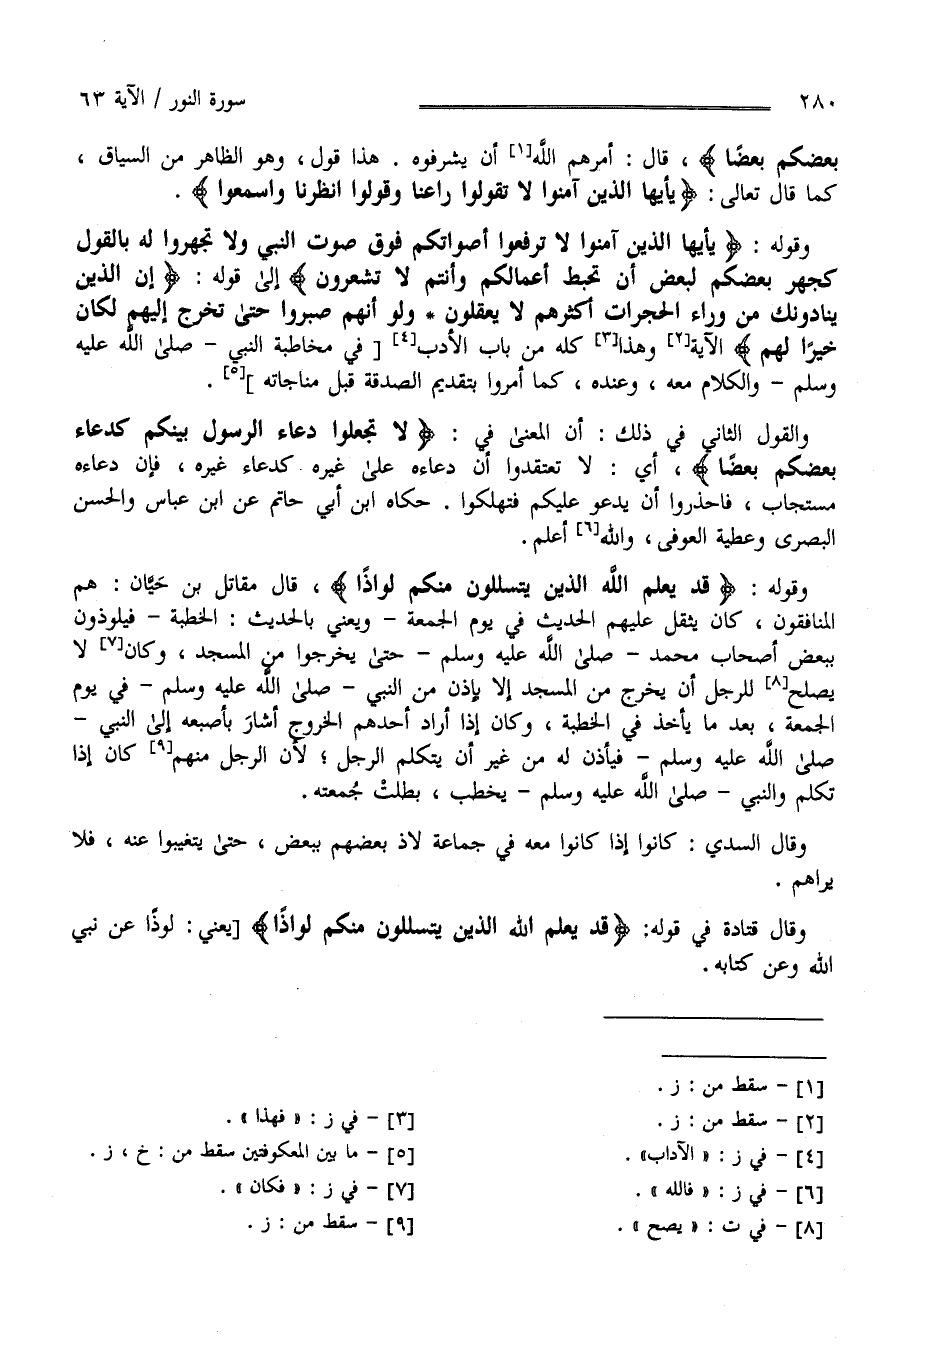 ٢٨٠ سورة النور / الآية ٦٣
بعضكم بعضًا ﴾ ، قال : أمرهم اللَّه[١] أن يشرفوه . هذا قول ، وهو الظاهر من السياق ،
كما قال تعالى : ﴿ يأيها الذين آمنوا لا تقولوا راعنا وقولوا انظرنا واسمعوا ﴾ .
وقوله : ﴿ يأيها الذين آمنوا لا ترفعوا أصواتكم فوق صوت النبي ولا تجهروا له بالقول
كجهر بعضكم لبعض أن تحبط أعمالكم وأنتم لا تشعرون ﴾ إلىٰ قوله : ﴿ إن الذين
ينادونك من وراء الحجرات أكثرهم لا يعقلون * ولو أنهم صبروا حتىٰ تخرج إليهم لكان
خيرًا لهم ﴾ الآية[٢] وهذا[٣] كله من باب الأدب[٤] [ في مخاطبة النبي – صلىٰ اللَّه عليه
وسلم – والكلام معه ، وعنده ، كما أمروا بتقديم الصدقة قبل مناجاته ][٥] .
والقول الثاني في ذلك : أن المعنىٰ في : ﴿ لا تجعلوا دعاء الرسول بينكم كدعاء
بعضكم بعضًا ﴾ ، أي : لا تعتقدوا أن دعاءه علىٰ غيره كدعاء غيره ، فإن دعاءه
مستجاب ، فاحذروا أن يدعو عليكم فتهلكوا . حكاه ابن أبي حاتم عن ابن عباس والحسن
البصرى وعطية العوفى ، والله[٦] أعلم .
وقوله : ﴿ قد يعلم اللَّه الذين يتسللون منكم لواذًا ﴾ ، قال مقاتل بن حَيَّان : هم
المنافقون ، كان يثقل عليهم الحديث في يوم الجمعة – ويعني بالحديث : الخطبة – فيلوذون
ببعض أصحاب محمد – صلىٰ اللَّه عليه وسلم – حتىٰ يخرجوا من المسجد ، وكان[٧] لا
يصلح[٨] للرجل أن يخرج من المسجد إلا بإذن من النبي – صلىٰ اللَّه عليه وسلم – في يوم
الجمعة ، بعد ما يأخذ في الخطبة ، وكان إذا أراد أحدهم الخروج أشارَ بأصبعه إلىٰ النبي –
صلىٰ اللَّه عليه وسلم – فيأذن له من غير أن يتكلم الرجل ؛ لأن الرجل منهم[٩] كان إذا
تكلم والنبي – صلىٰ اللَّه عليه وسلم – يخطب ، بطلتْ جُمعته .
وقال السدي : كانوا إذا كانوا معه في جماعة لاذ بعضهم ببعض ، حتىٰ يتغيبوا عنه ، فلا
يراهم .
وقال قتادة في قوله: ﴿ قد يعلم الله الذين يتسللون منكم لواذًا ﴾ [يعني : لوذًا عن نبي
الله وعن كتابه .
[١] – سقط من : ز .
[٢] – سقط من : ز . [٣] – في ز : « فهذا » .
[٤] – في ز : « الآداب» . [٥] – ما بين المعكوفتين سقط من : خ ، ز .
[٦] – في ز : « فالله » . [٧] – في ز : « فكان » .
[٨] – في ت : « يصح » . [٩] – سقط من : ز .